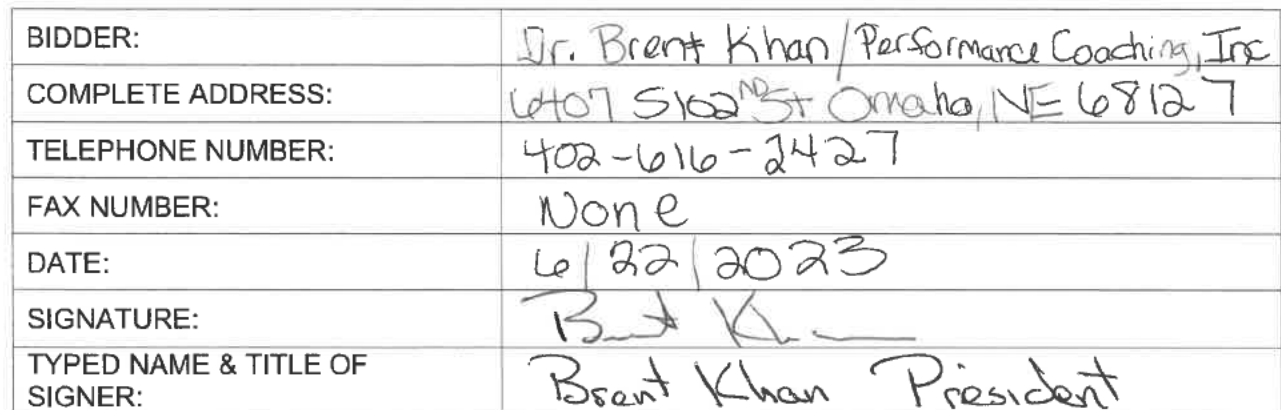 BIDDER: Dr. Brent Khan/Performance Coaching, Inc
COMPLETE ADDRESS: 6407 S 102ND St Omaha, NE 68127
TELEPHONE NUMBER: 402-616-2427
FAX NUMBER: None
DATE: 6/22/2023
SIGNATURE: Brent Kh
TYPED NAME & TITLE OF
SIGNER: Brent Khan President